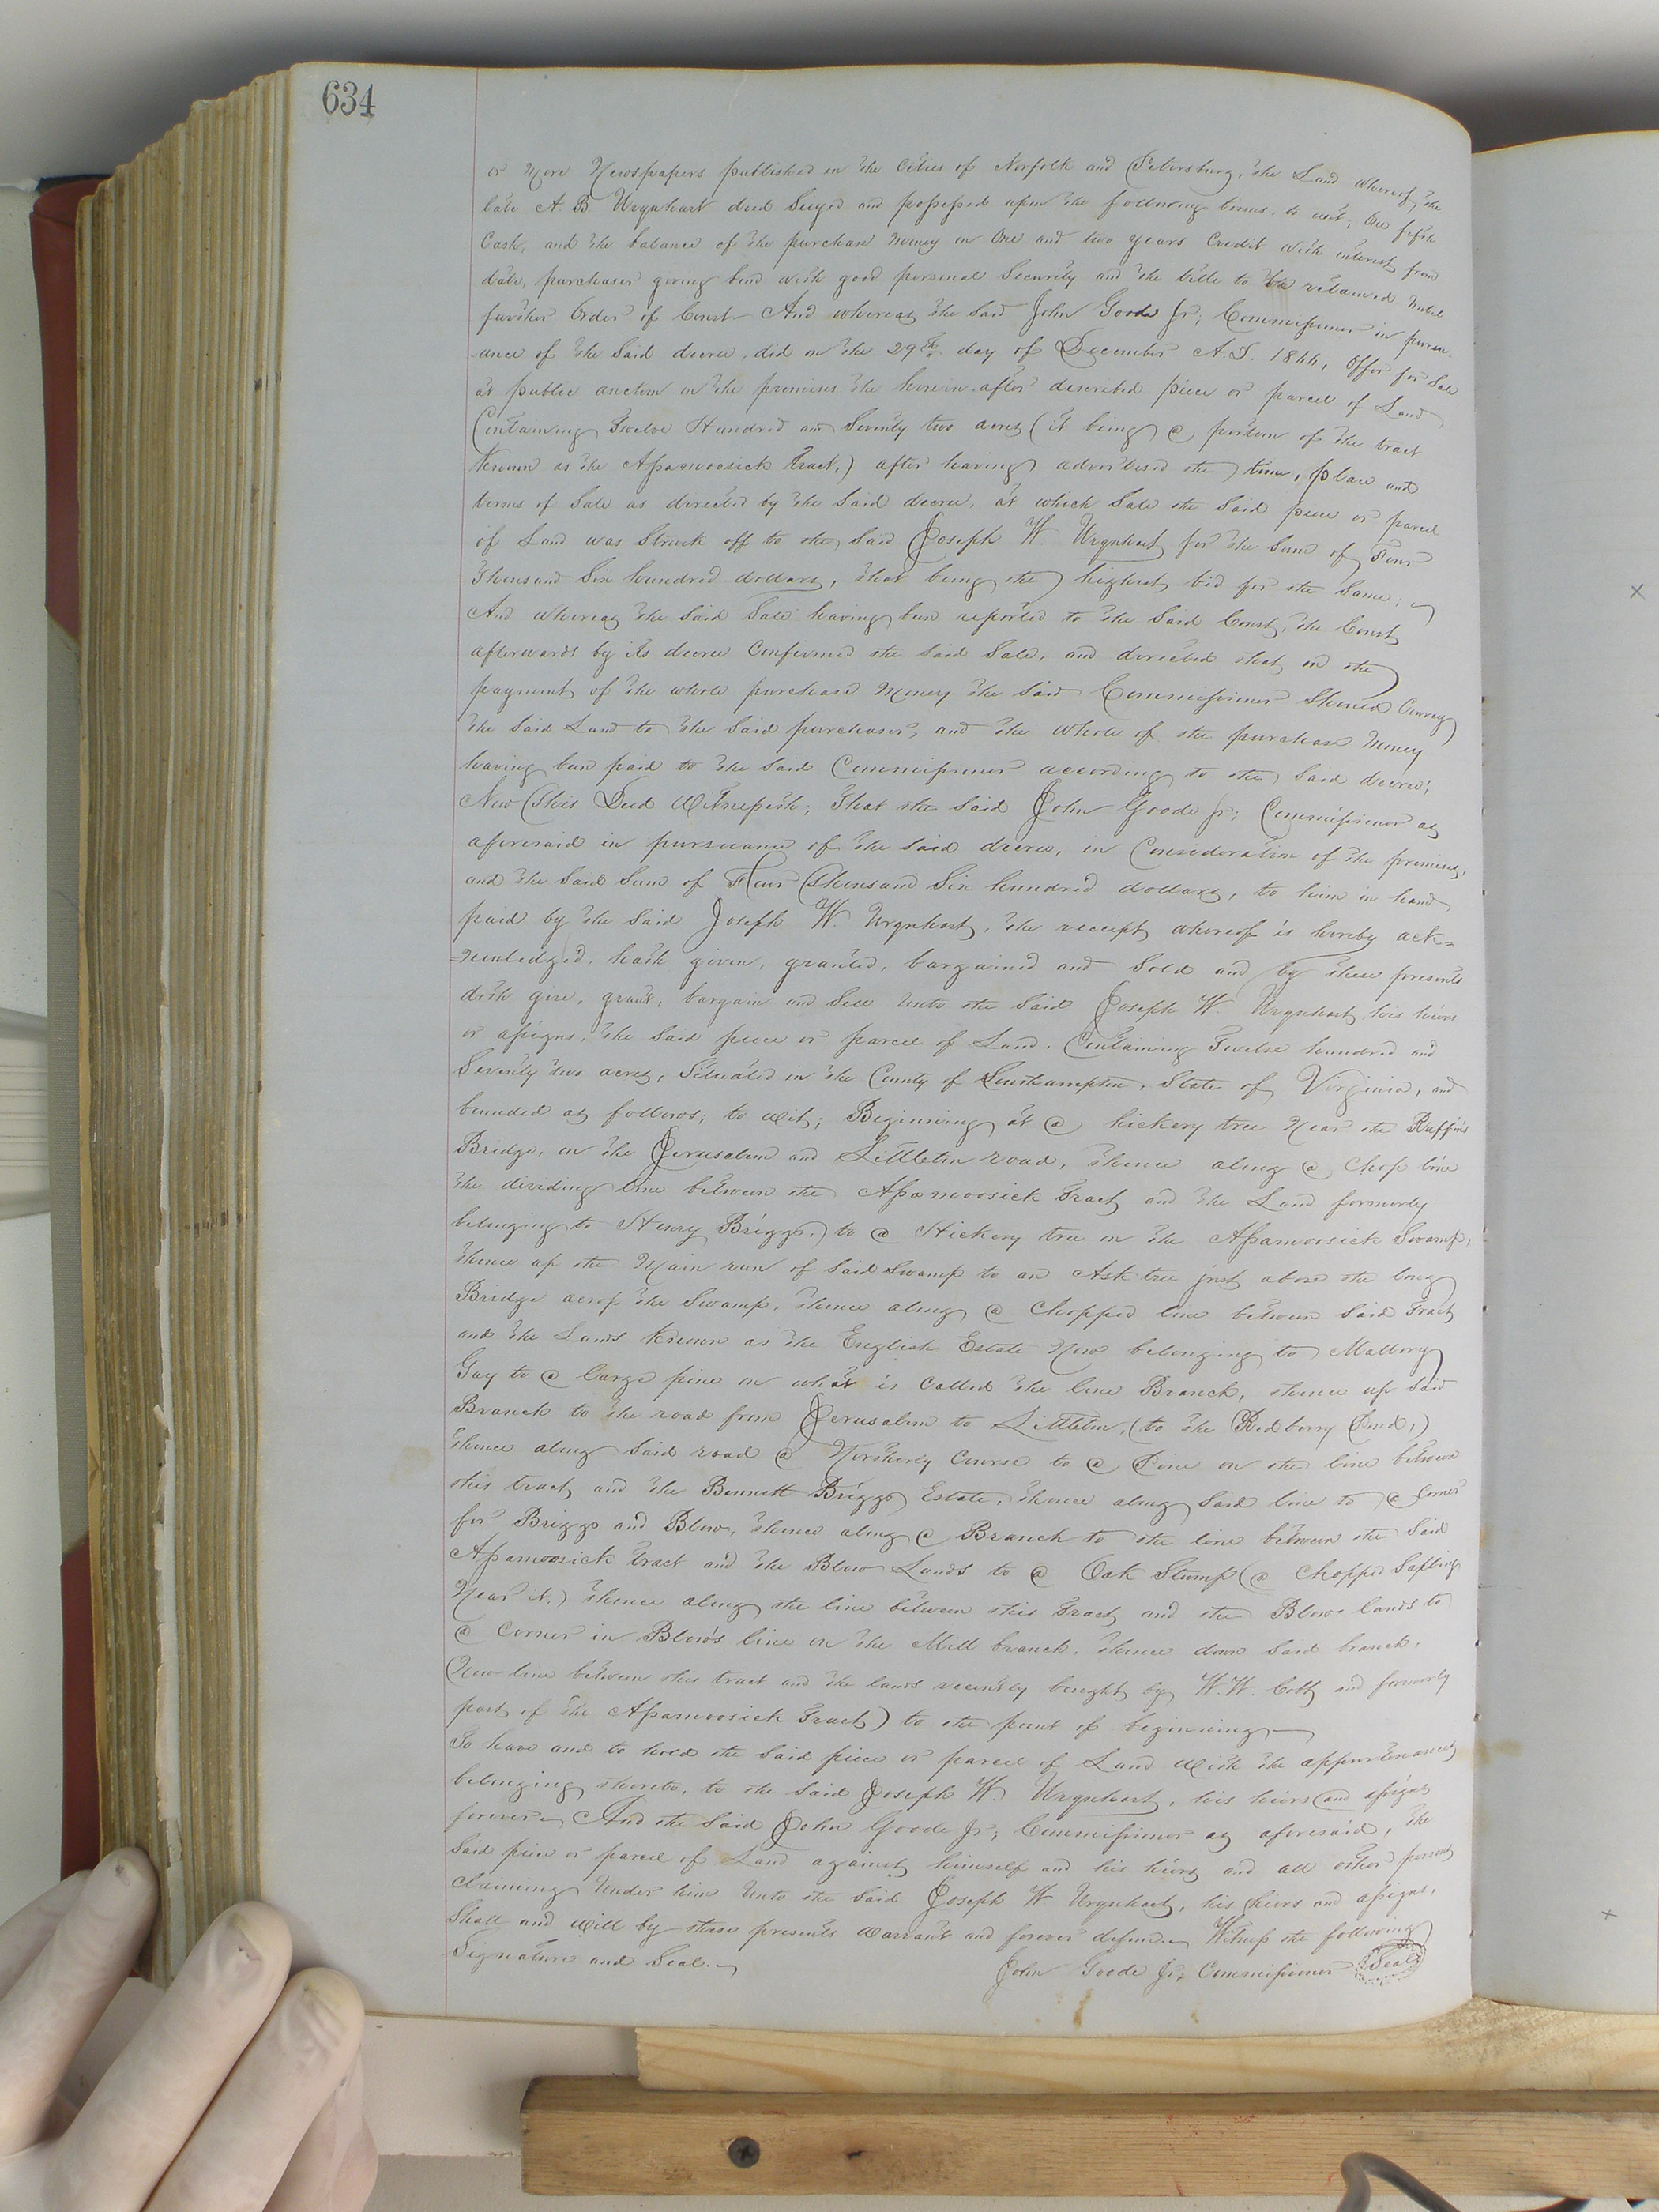 634
or more Newspapers published in the Cities of Norfolk and Petersburg, the Land whereof the
late A. B Urquhart died Seized and possessed upon the following terms, to wit, One fifth
Cash, and the balance of the purchase money on One and two years Credit with interest from
date, purchaser giving bond with good personal Security and the title to be retained until
further Order of Court – And whereas the Said John Goode Jr; Commissioner in pursu-
ance of the Said decree, did on the 29th day of December A.D. Offer for Sale
at public auction on the premises the herein after described piece or parcel of Land
Containing Twelve Hundred and Seventy two acres (it being a portion of the tract
Known as the Assamoosick Tract,) after having advertised the time, place and
terms of Sale as directed by the Said decree, at which Sale the Said piece or parcel
of Land was Struck off to the Said Joseph W. Urquhart for the Sum of Four
Thousand Six hundred dollars, that being the highest bid for the Same;
And whereas the Said Sale having been reported to the Said Court, the Court
afterwards by its decree Confirmed the Said Sale, and directed that on the
payment of the whole purchase money the Said Commissioner Should Convey
the Said Land to the Said purchaser, and the whole of the purchase money
having been paid to the Said Commissioner according to the Said decree;
Now This Deed Witnesseth; That the Said John Goode Jr; Commissioner as
aforesaid in pursuance of the Said decree, in Consideration of the premises,
and the Said Sum of Four Thousand Six hundred dollars, to him in hand
paid by the Said Joseph W. Urquhart, the receipt whereof is hereby ack=
=nowledged, hath given, granted, bargained and Sold and by these presents
doth give, grant, bargain and Sell unto the Said Joseph W. Urquhart, his heirs
or assigns, the Said piece or parcel of Land, Containing Twelve hundred and
Seventy two acres, Situated in the County of Southampton, State of Virginia, and
bounded as follows; to wit; Beginning at a hickory tree near the Ruffin's
Bridge, on the Jerusalem and Littleton road, thence along a Chop line
the dividing line between the Assamoosick Tract and the Land formerly
belonging to Henry Briggs,) to a Hickory tree on the Assamoosick Swamp,
thence up the Main run of Said Swamp to an Ash tree just above the long
Bridge across the Swamp, thence along a Chopped line between Said Tract
and the Lands Known as the English Estate Now belonging to Mallory
Gay to a large pine on what is Called the line Branch, thence up Said
Branch to the road from Jerusalem to Littleton, (to the Redberry Pond,)
thence along Said road a Northerly Course to a Pine on the line between
this tract and the Bennett Briggs Estate, thence along Said line to a Corner
for Briggs and Blow, thence along a Branch to the line between the Said
Assamoosick Tract and the Blow Lands to a Oak Stump (a Chopped Sapling
Near it,) thence along the line between this Tract and the Blow lands to
a Corner in Blow's line on the Mill branch, thence down Said branch,
(now line between this tract and the lands recently bought by W. W. Cobb and formerly
part of the Assamoosick Tract) to the point of beginning
To have and to hold the Said piece or parcel of Land with the appurtenances
belonging thereto, to the Said Joseph W. Urquhart, his heirs and assigns
forever. And the Said John Goode Jr; Commissioner as aforesaid, the
Said piece or parcel of Land against himself and his heirs and all other persons
claiming under him unto the Said Joseph W Urquhart, his heirs and assigns,
Shall and will by these presents warrant and forever defend. Witness the following
Signature and Seal.
John Goode Jr, Commissioner Seal